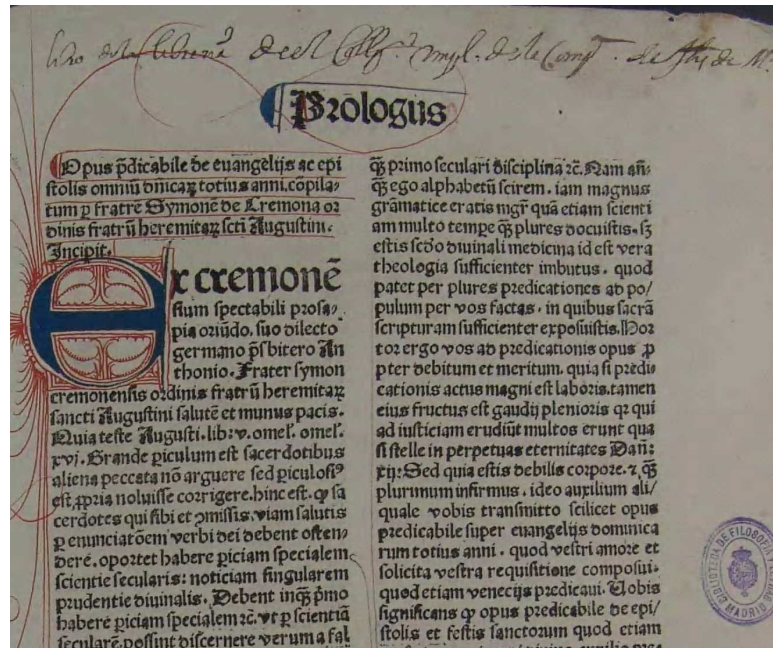 libro de la libreria del Collº Impl. de la Compª de Jhs de Md
Prologus
Opus p̄dicabile de euangelijs ac epi
stolis omniū dn̄icaꝝ totius anni. cōpila⸗
tum ꝑ fratrē Symonē de Cremona or
dinis fratrū heremitaꝝ sct̄i Augustini.
Incipit.
Ex cremonē
sium spectabili prosa⸗
pia oriūdo. suo dilecto
germano p̄sbitero An
thonio. Frater symon
cremonensis ordinis fratrū heremitaꝝ
sancti Augustini salutē et munus pacis.
Quia teste Augusti. lib: v. omel. omel.
xvj. Grande ꝑiculum est sacerdotibus
aliena peccata nō arguere sed ꝑiculosiꝰ
est ꝓpria noluisse corrigere. hinc est. ꝙ sa
cerdotes qui sibi et ꝯmissis. viam salutis
ꝑ enunciatōem verbi dei debent osten⸗
dere. oportet habere ꝑiciam specialem
scientie secularis: noticiam singularem
prudentie diuinalis. Debent inqꝫ p̄mo
habere ꝑiciam specialem ⁊c. vt ꝑ scientiā
secularē. possint discernere verum a fal
qꝫ primo seculari disciplina ⁊c. Nam an̄⸗
qꝫ ego alphabetū scirem. iam magnus
grāmatice eratis mgr̄ quā etiam scienti
am multo tempe qꝫ plures docuistis. sꝫ
estis scd̄o diuinali medicina id est vera
theologia sufficienter imbutus. quod
patet per plures predicationes ad po⸗
pulum per vos factas. in quibus sacrā
scripturam sufficienter exposuistis. Hor
tor ergo vos ad predicationis opus ꝓ
pter debitum et meritum. quia si predi⸗
cationis actus magni est laboris. tamen
eius fructus est gaudij plenioris qr qui
ad iusticiam erudiūt multos erunt qua
si stelle in perpetuas eternitates Dan:
xij: Sed quia estis debilis corpore. ⁊ qꝫ
plurimum infirmus. ideo auxilium ali⸗
quale vobis transmitto scilicet opus
predicabile super euangelijs dominica
rum totius anni. quod vestri amore et
solicita vestra requisitione composui.
quod etiam venecijs predicaui. Uobis
significans ꝙ opus predicabile de epi⸗
stolis et festis sanctorum quod etiam
BIBLIOTECA DE FILOSOFIA
MADRID